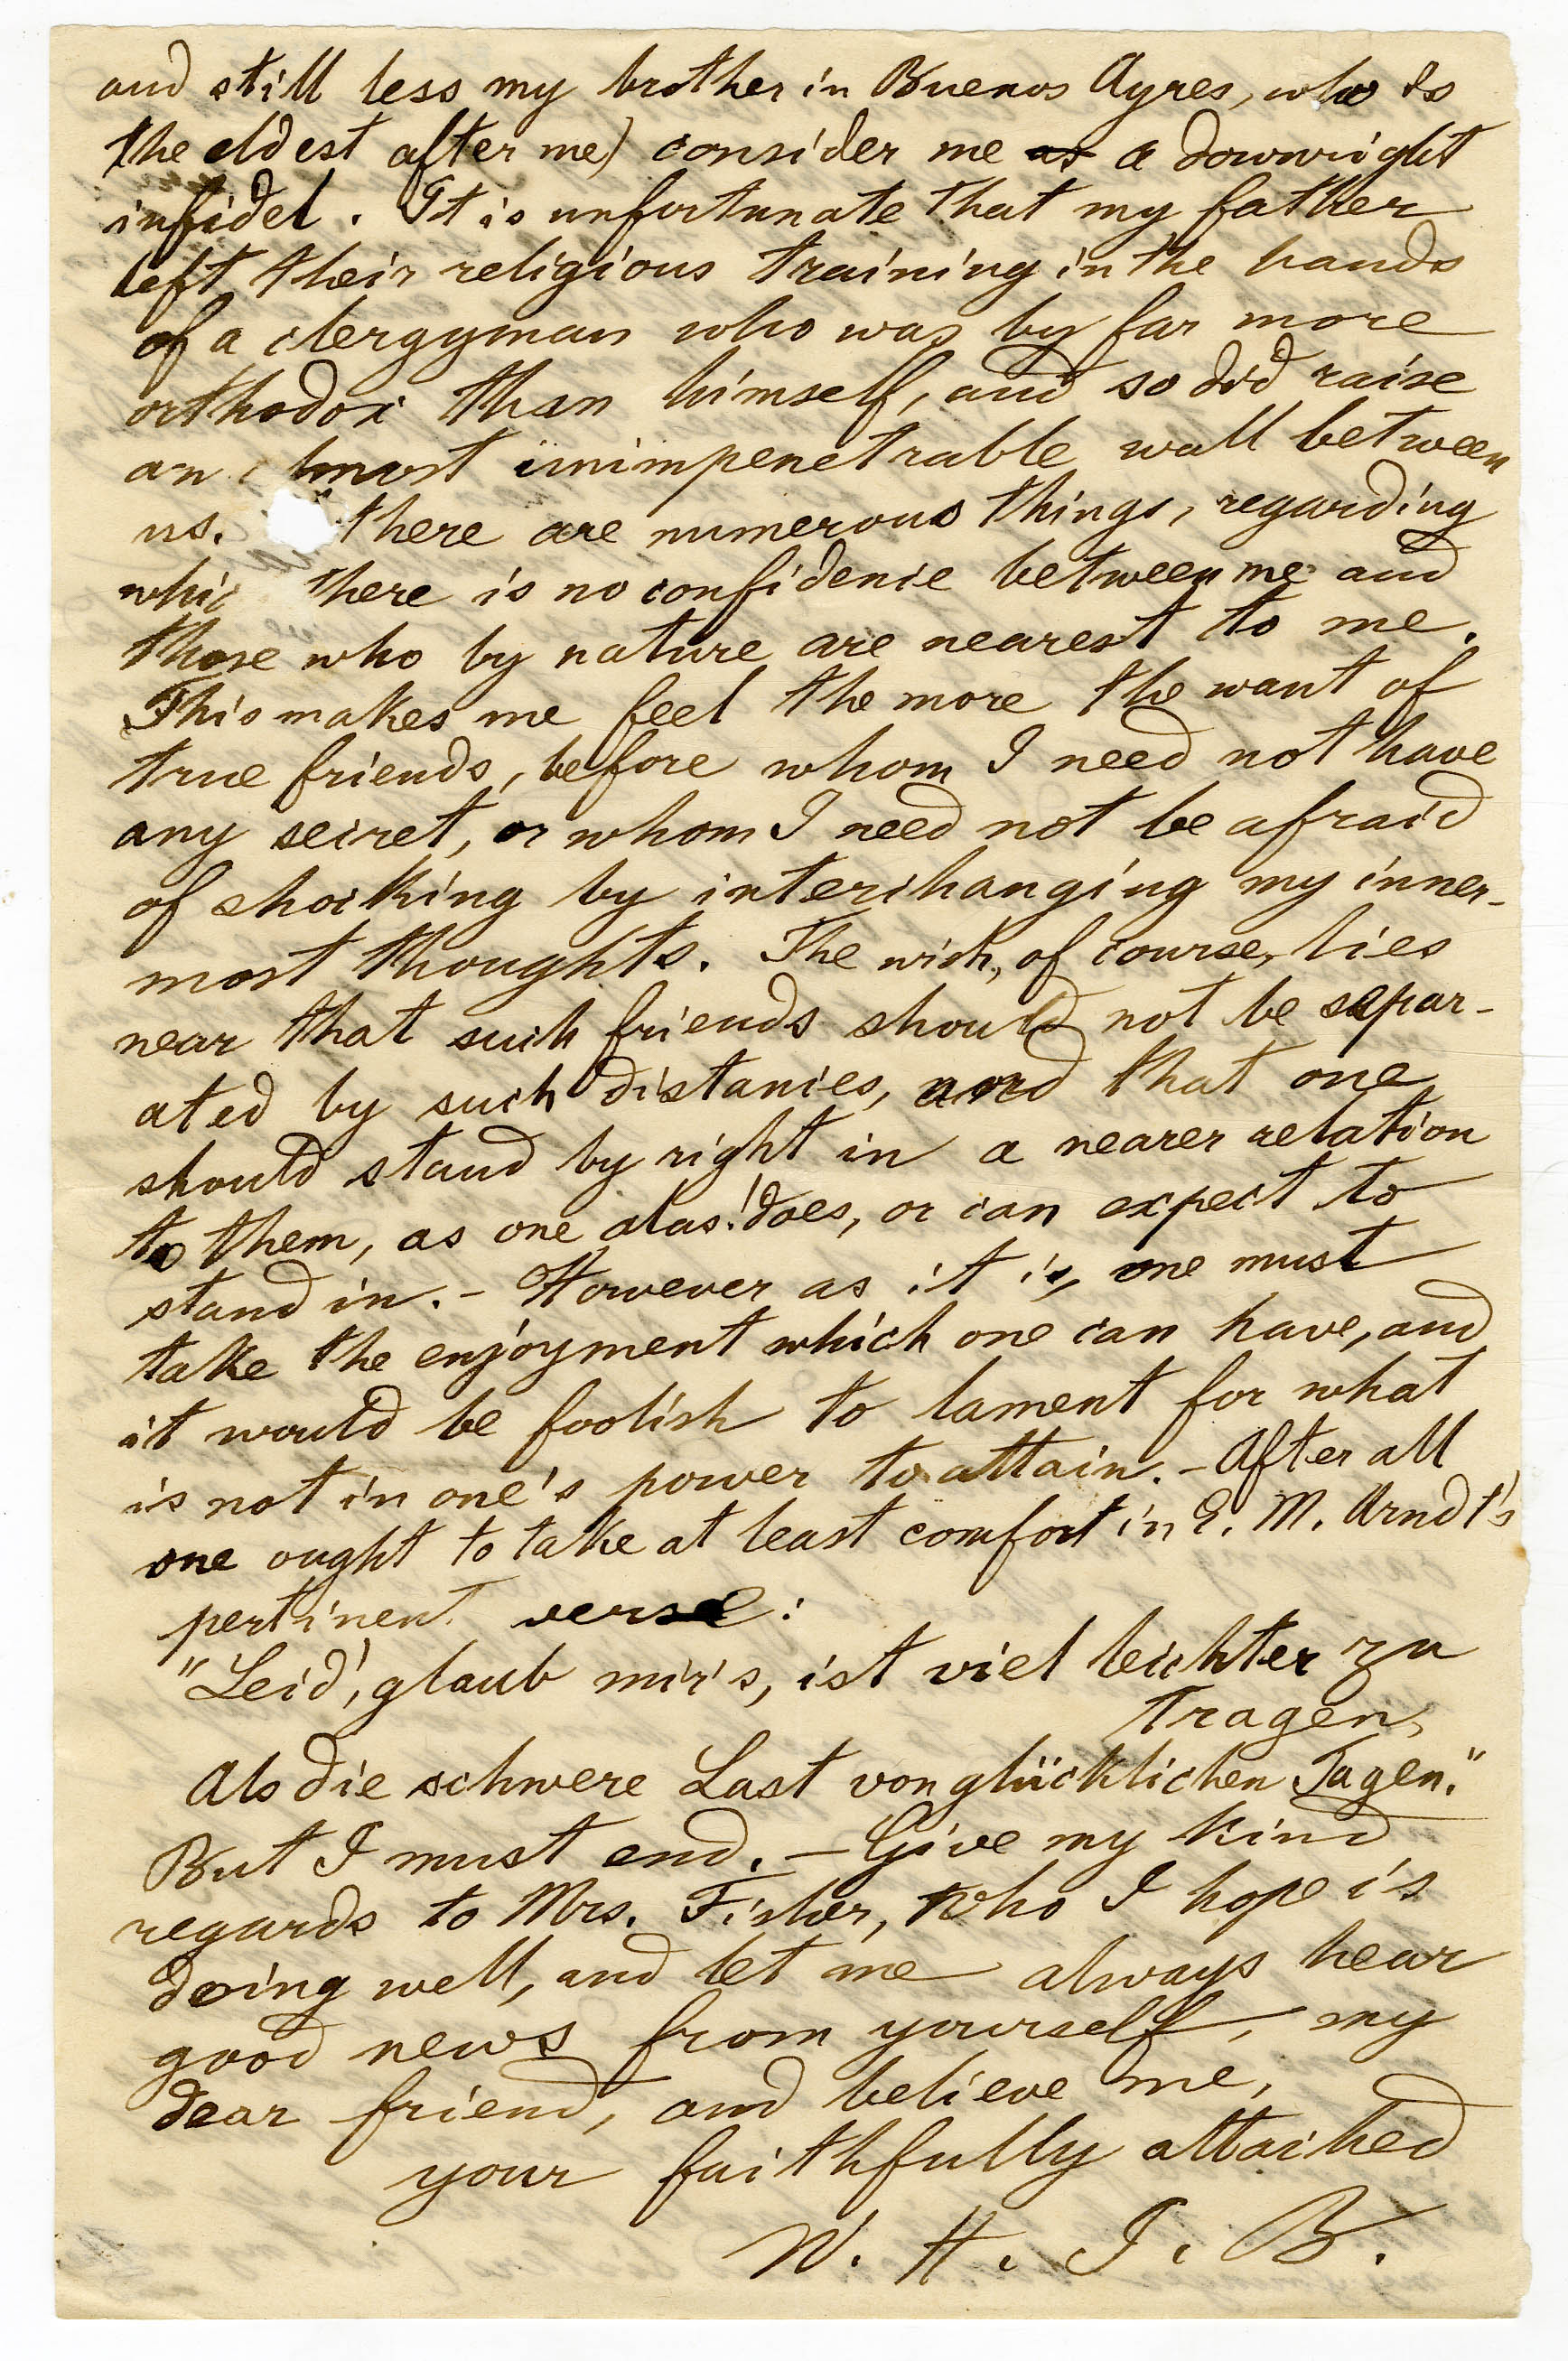 and still less my brother in Buenos Ayres, who is
the eldest after me) consider me as a downright
infidel. It is unfortunate that my father
left their religious training in the hands
of a clergyman who was by far more
orthodox than himself, and so did raise
an almost inimpenetrable wall between
us. there are numerous things, regarding
whic there is no confidence between me and
those who by nature are nearest to me.
This makes me feel the more the want of
true friends, before whom I need not have
any secret, or whom I need not be afraid
of shocking by interchanging my inner-
most thoughts. The wish, of course, lies
near that such friends should not be separ-
ated by such distances, and that one
should stand by right in a nearer relation
to them, as one alas! does, or can expect to
stand in. - However as it is, one must
take the enjoyment which one can have, and
it would be foolish to lament for what
is not in one's power to attain. - After all
one ought to take at least comfort in E. M. Arndt's
pertinent verse:
"Leid', glaub mir's, ist viel leichter zu
tragen,
Als die schwere Last von glücklichen Tagen."
But I must end. - Give my kind
regards to Mrs. Fisher, who I hope is
doing well, and let me always hear
good news from yourself, my
dear friend, and believe me,
your faithfully attached
W. H. I. B.